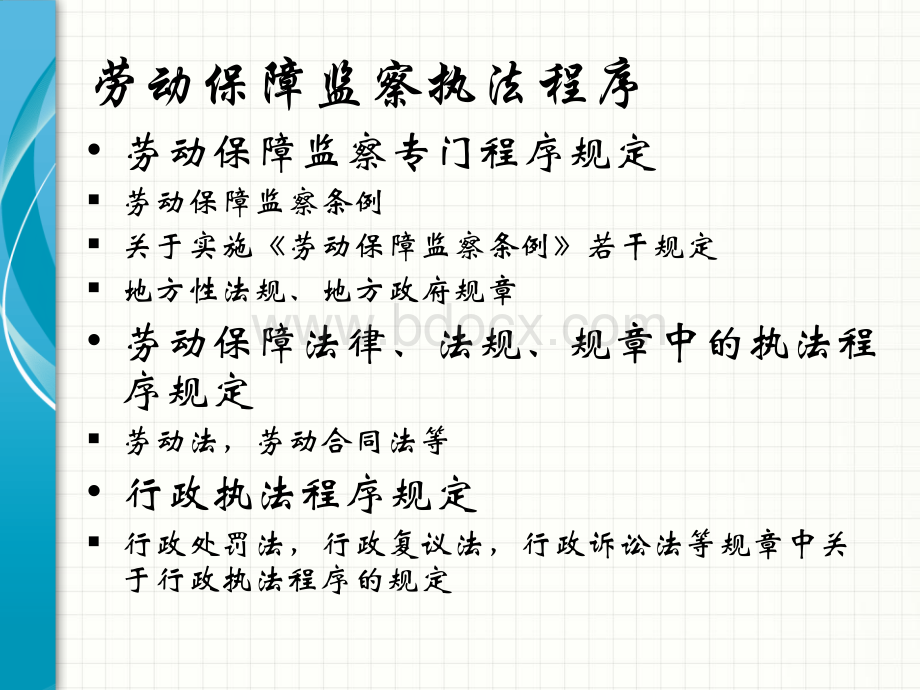 劳动保障监察执法程序
• 劳动保障监察专门程序规定
▪ 劳动保障监察条例
▪ 关于实施《劳动保障监察条例》若干规定
▪ 地方性法规、地方政府规章
www.bdocx.com
• 劳动保障法律、法规、规章中的执法程
序规定
▪ 劳动法，劳动合同法等
• 行政执法程序规定
▪ 行政处罚法，行政复议法，行政诉讼法等规章中关
于行政执法程序的规定